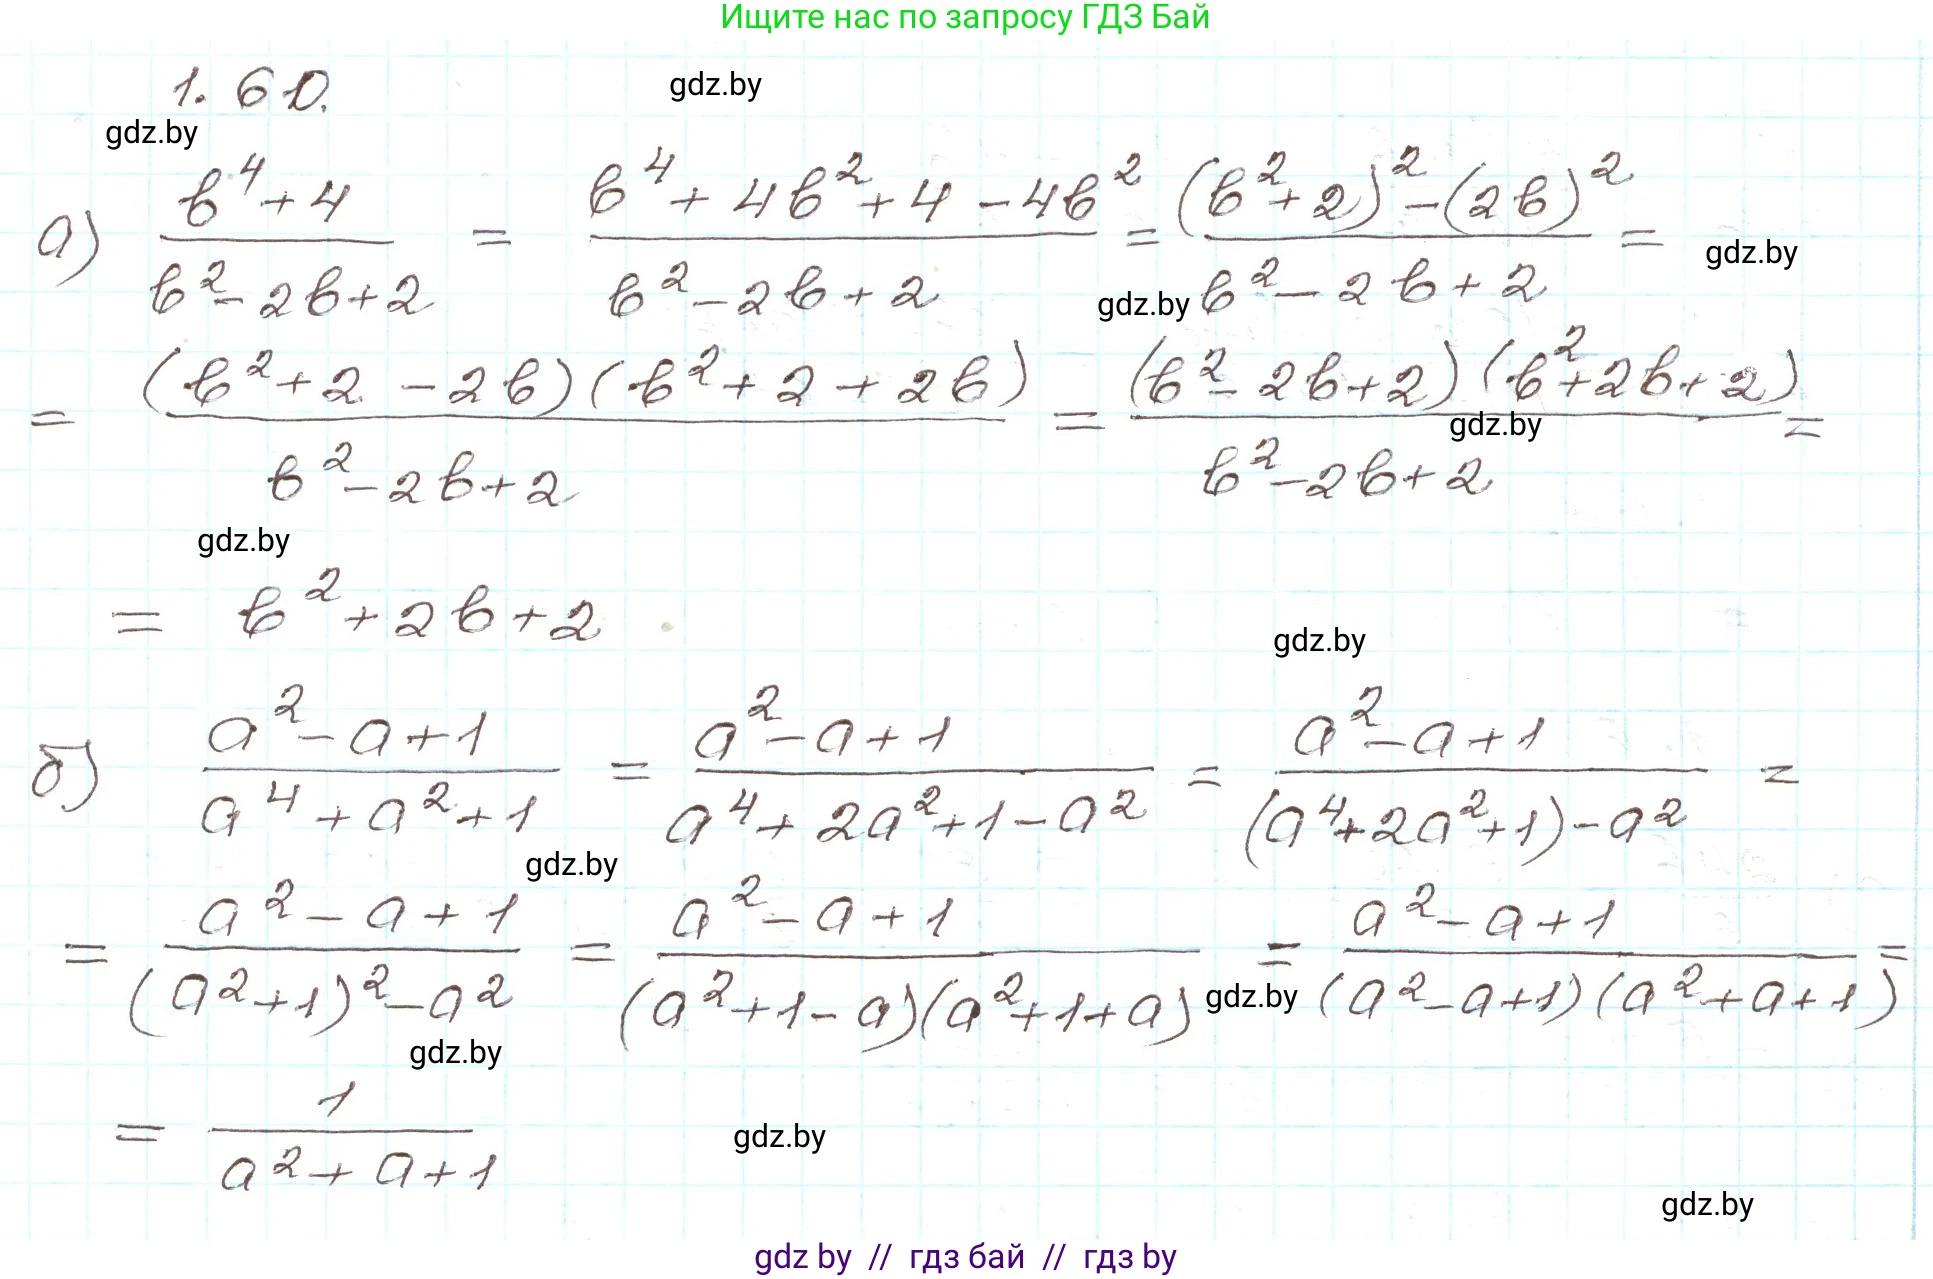 Ищите нас по запросу ГДЗ Бай
1.60.
gdz.by
gdz.by
а) (b⁴+4)/(b²-2b+2) = (b⁴+4b²+4-4b²)/(b²-2b+2) = ((b²+2)²-(2b)²)/(b²-2b+2) =
gdz.by
gdz.by
= ((b²+2-2b)(b²+2+2b))/(b²-2b+2) = ((b²-2b+2)(b²+2b+2))/(b²-2b+2) =
gdz.by
gdz.by
= b²+2b+2
gdz.by
б) (a²-a+1)/(a⁴+a²+1) = (a²-a+1)/(a⁴+2a²+1-a²) = (a²-a+1)/((a⁴+2a²+1)-a²) =
gdz.by
= (a²-a+1)/((a²+1)²-a²) = (a²-a+1)/((a²+1-a)(a²+1+a)) = (a²-a+1)/((a²-a+1)(a²+a+1)) =
gdz.by
gdz.by
= 1/(a²+a+1)
gdz.by
gdz.by
gdz by // гдз бай // гдз by